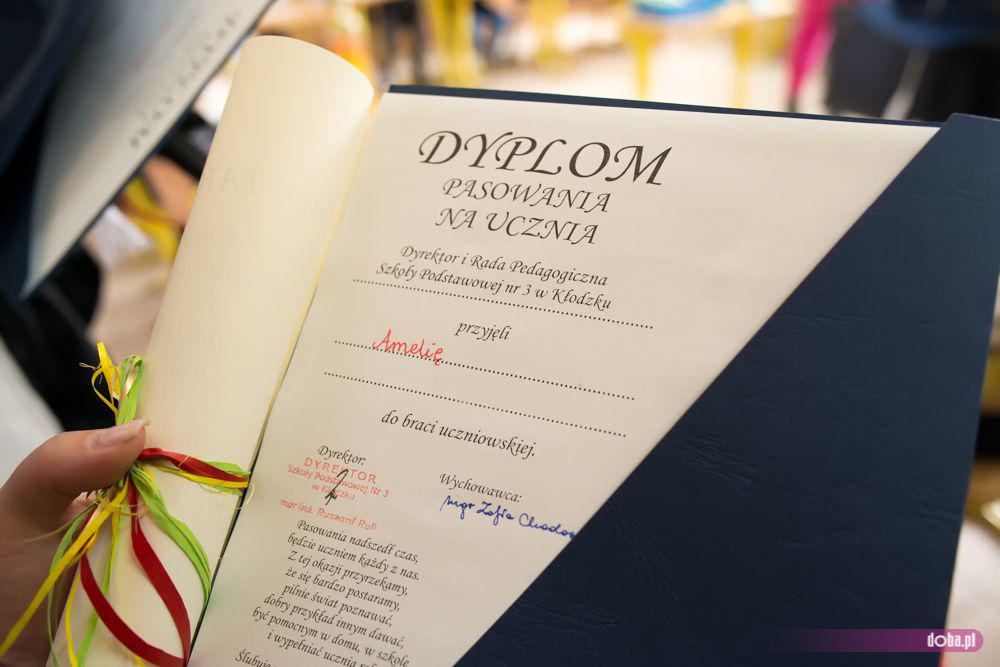 DYPLOM
PASOWANIA
NA UCZNIA
Dyrektor i Rada Pedagogiczna
Szkoły Podstawowej nr 3 w Kłodzku
przyjęli
Amelię
do braci uczniowskiej.
Dyrektor:
DYREKTOR
Szkoły Podstawowej Nr 3
w Kłodzku
mgr inż. Ryszard Rull
Wychowawca:
mgr Zofia
Pasowania nadszedł czas,
będzie uczniem każdy z nas.
Z tej okazji przyrzekamy,
że się bardzo postaramy,
pilnie świat poznawać,
dobry przykład innym dawać,
być pomocnym w domu, w szkole
i wypełniać ucznia
doba.pl